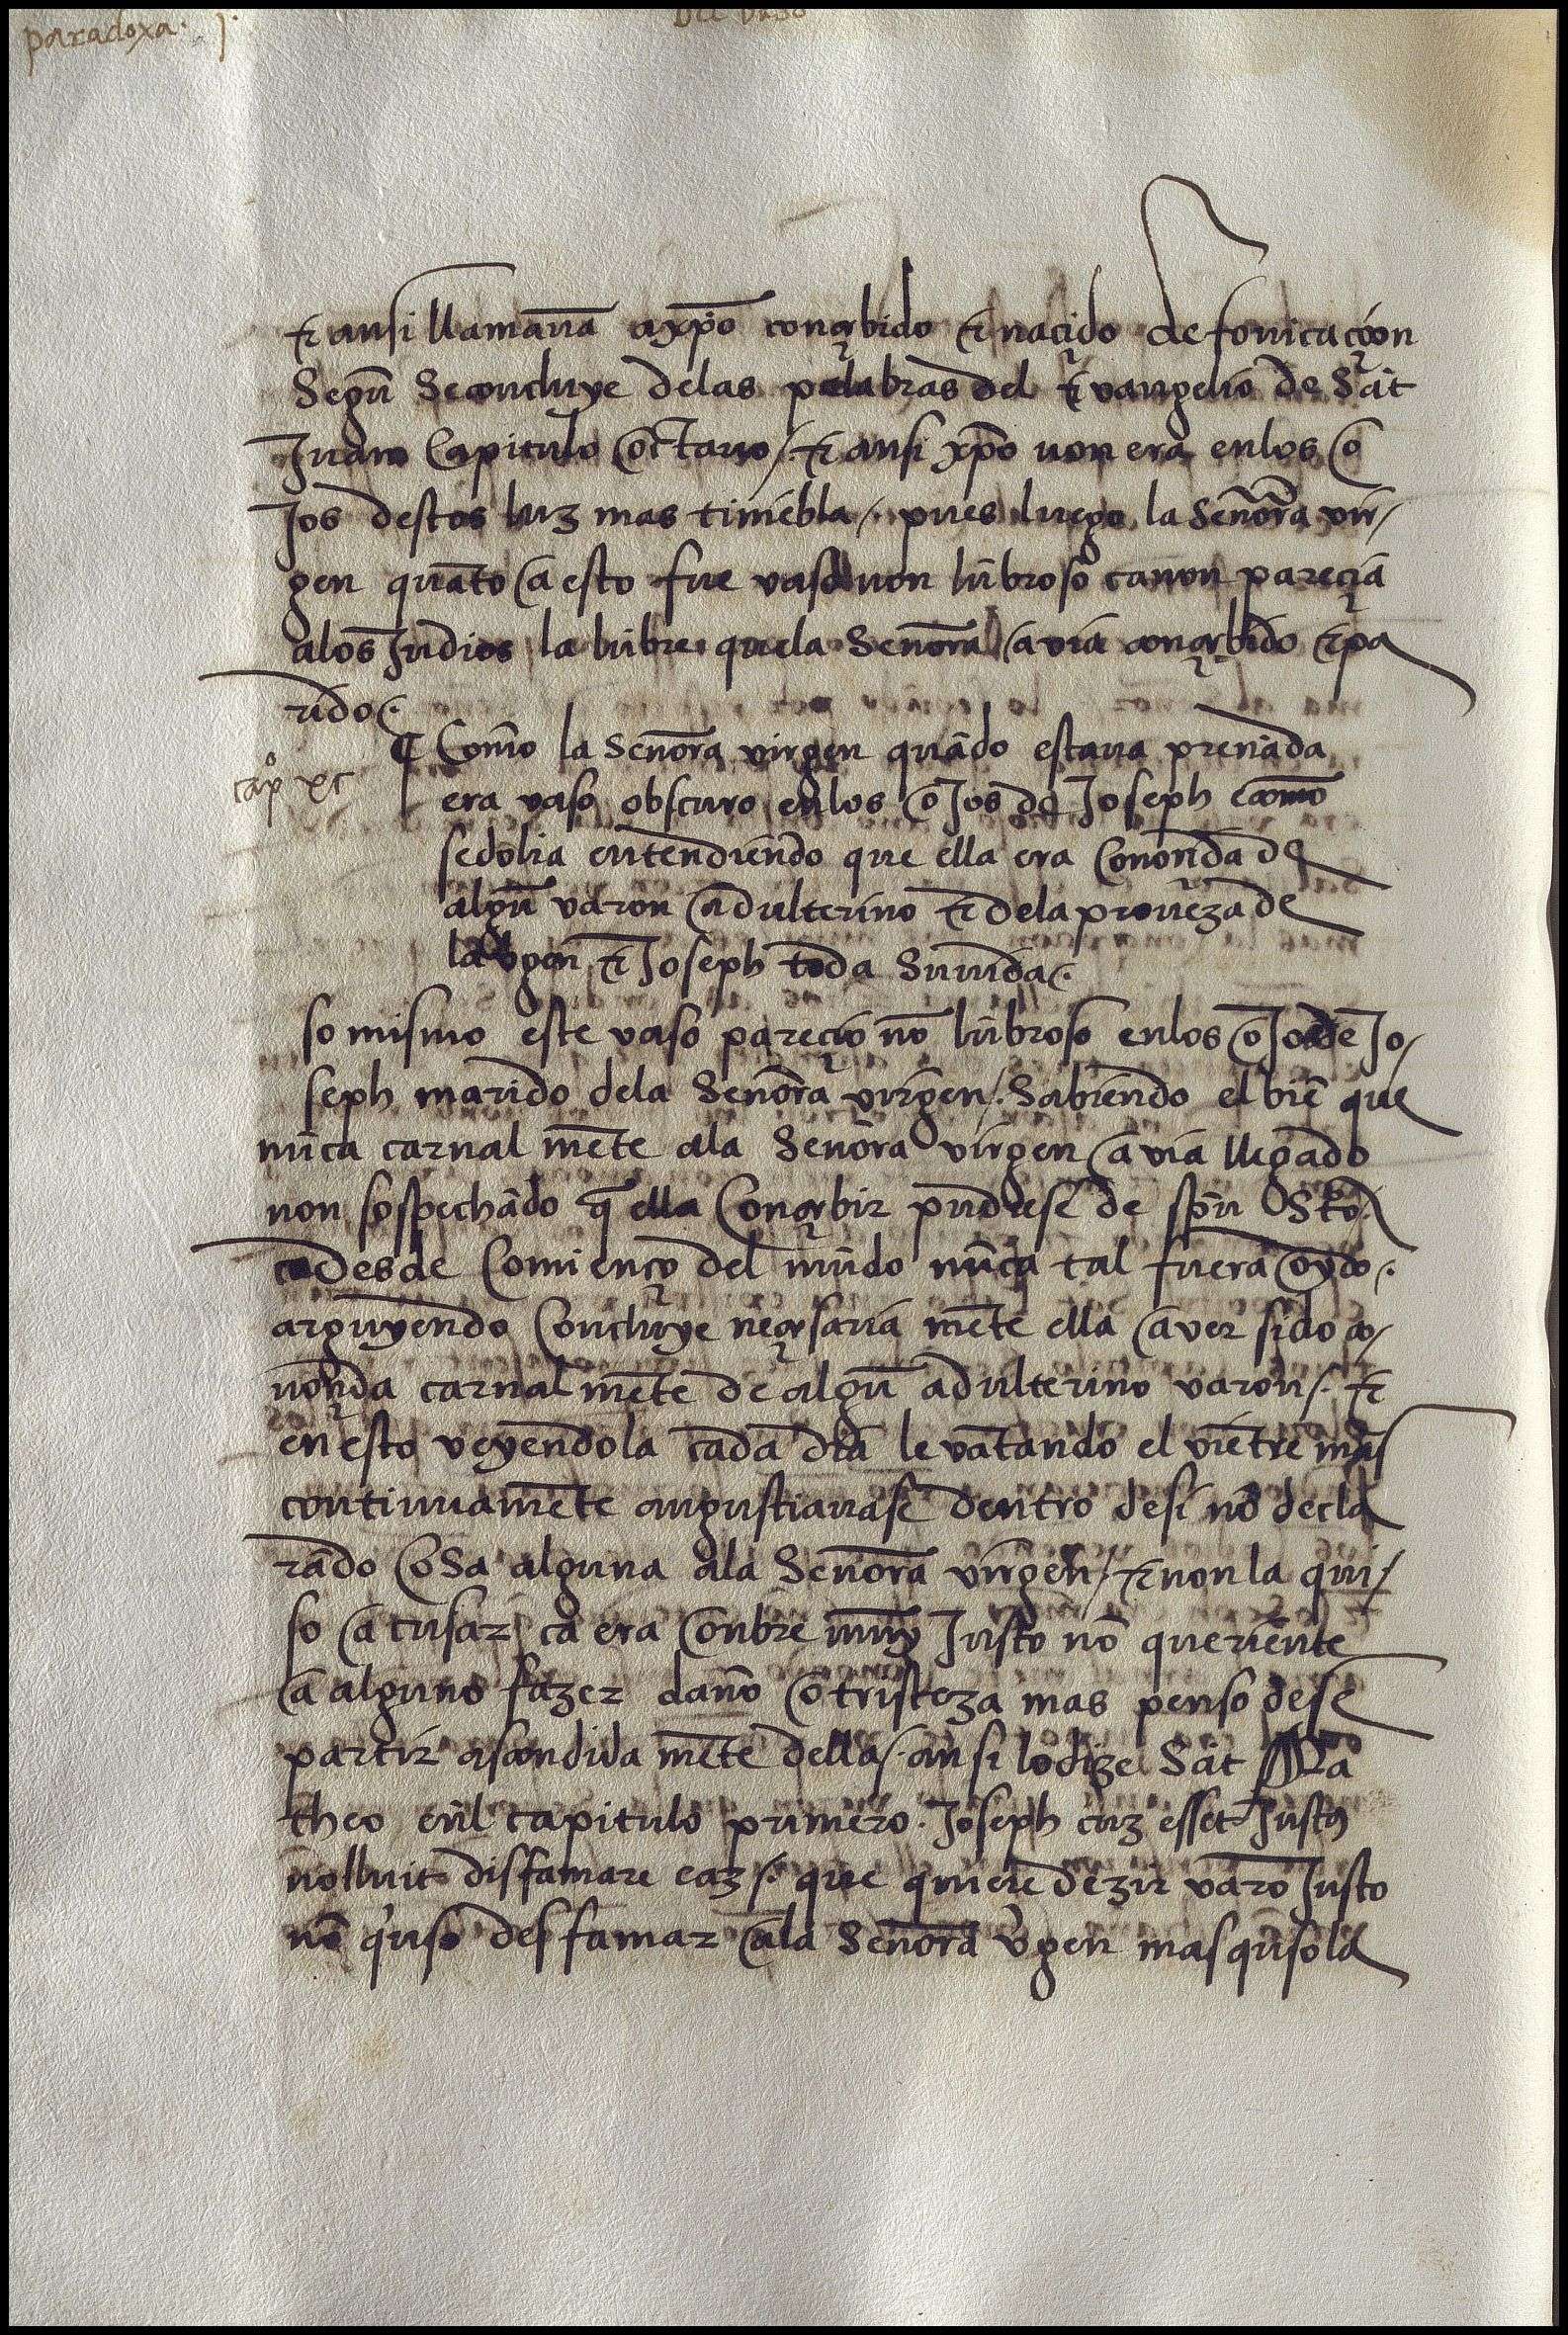 paradoxa. j.
Del vaso
& ansi llamauã a xp̃o conçebido & nacido de fornicaçion
Segũ Se concluye delas palabras del euangelio de Sãt
Juan Capitulo octauo /. & ansi xp̃o non era enlos o
Jos destos luz mas tiniẽbla /. pues luego la Señora vir/
gen quãto a esto fue vaso non lũbroso ca non pareçia
alos Judios la lũbre que la Señora avia conçebido & pa
rido /.
capº xc
¶ Como la Señora virgen quãdo estaua preñada
era vaso obscuro enlos oJos de Joseph & como
se dolia entendiendo que ella era Conoçida de
algũ varon adulterino & dela proueza de
la vgen & Joseph toda Su vida /.
so mismo este vaso pareçio nõ lũbroso enlos oJos de Jo/
seph marido dela Señora virgen /. Sabiendo el biẽ que
nũca carnal mẽte ala Señora virgen avia llegado
non sospechãdo q̃ ella Conçebir pudiese de spũ Stõ
ca desde Comienço del mũdo nũca tal fuera oydo /.
arguyendo Concluye neçesaria mẽte ella aver sido co/
noçida carnal mẽte de algũ adulterino varon /. &
en esto veyendola cada dia levãtando el viẽtre mas
continuamẽte angustiauase dentro de si nõ decla
rãdo coSa alguna ala Señora virgen /. & non la qui/
so acusar ca era onbre muy Justo nõ queriente
a alguno fazer daño o tristeza mas penso de se
partir ascondida mẽte della /. ansi lo dize Sãt Ma
theo enl capitulo primero. Joseph cuz esset Justus
nolluit disfamare eaz /. que quiere dezir varõ Justo
nõ quiso desfamar ala Señora vgen mas quisola